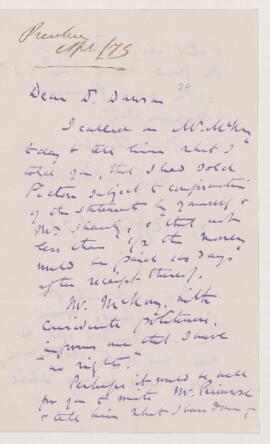 Apl. /73
24
Dear Dr. Dawson
I called on Mr. McKay
today to tell him what I
told you, that I had sold
Pictou subject to confirmation
of the statements by yourself &
Mr
less than the money
would be paid 60 days
after receipt thereof.
Mr. McKay, with
politeness,
informs me that I have
"no rights."
Perhaps it would be well
for you to write Mr. Primrose
& tell him what I have done,